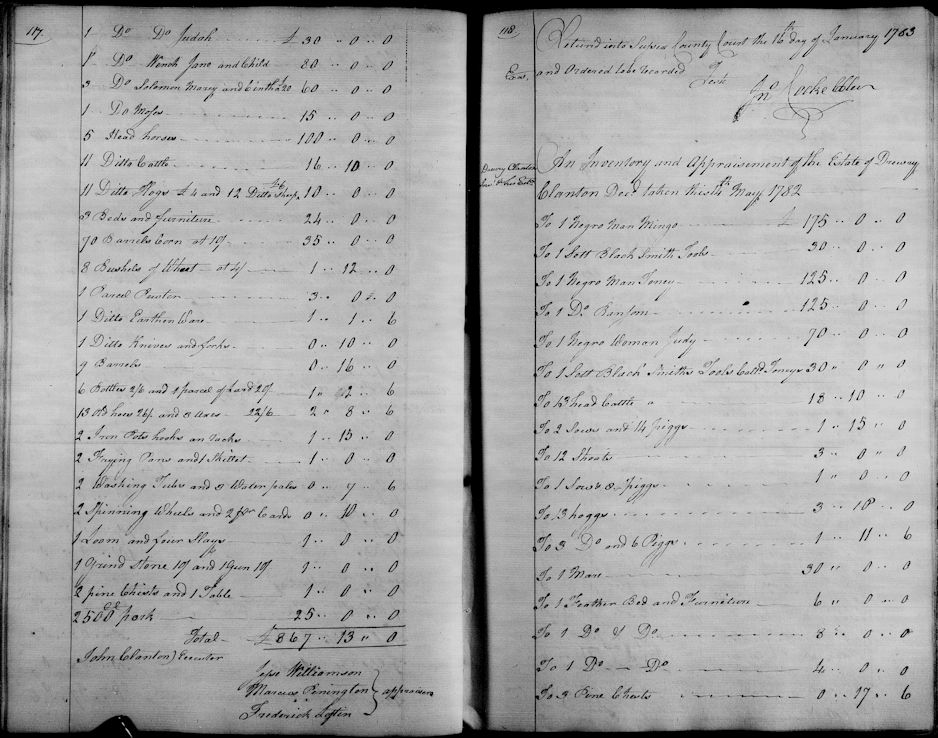 117.
1 Do Do Judah £ 30 .. 0 .. 0
1 Do Wench Jane and Child 80 .. 0 .. 0
3 Do Solomon Marey and Cintha £20 60 .. 0 .. 0
1 Do Moses 15 .. 0 .. 0
5 Head horses 100 .. 0 .. 0
11 Ditto Cattle 16 .. 10 .. 0
11 Ditto Hogs £4 and 12 Ditto Sheep £6 10 .. 0 .. 0
3 Beds and furniture 24 .. 0 .. 0
70 Barrels Corn at 10/ 35 .. 0 .. 0
8 Bushels of Wheat at 4/ 1 .. 12 .. 0
1 Parcel Pewter 3 .. 0 .. 0
1 Ditto Earthen Ware 1 .. 1 .. 6
1 Ditto Knives and forks 0 .. 10 .. 0
9 Barrels 0 .. 16 .. 0
6 Bottles 2/6 and 1 parcel of Lard 20/ 1 .. 2 .. 6
13 Old hoes 26/ and 8 Axes 22/6 2 .. 8 .. 6
2 Iron Pots hooks an racks 1 .. 15 .. 0
2 Frying Pans and 1 Skillet 1 .. 0 .. 0
2 Washing Tubs and 3 Water pales 0 .. 7 .. 6
2 Spinning Wheels and 2 pr Cards 0 .. 10 .. 0
1 Loom and four Slays 1 .. 0 .. 0
1 Grind Stone 10/ and 1 Gun 10/ 1 .. 0 .. 0
2 pine Chists and 1 Table 1 .. 0 .. 0
2500 pork 25 .. 0 .. 0
Total £867 .. 13 .. 0
John Clanton) Executor
Jesse Williamson
Marcus Penington } appraisers
Frederick Loftin
118.
Returnd into Sussex County Court the 16th day of January 1783
Exd. and Ordered to be recorded
Test
Jno Cocke
Drewry Clanton
An Inventory and Appraisement of the Estate of Drewry
Clanton Decd taken this May 1782
To 1 Negro Man Mingo £ 175 .. 0 .. 0
To 1 Sett Black Smith Tools 30 .. 0 .. 0
To 1 Negro Man Toney 125 .. 0 .. 0
To 1 Do Ransom 125 .. 0 .. 0
To 1 Negro Woman Judy 70 .. 0 .. 0
To 1 Sett Black Smiths Tools Calld Toneys 30 .. 0 .. 0
To 13 head Cattle 18 .. 10 .. 0
To 2 Sows and 14 piggs 1 .. 15 .. 0
To 12 Shoats 3 .. 0 .. 0
To 1 Sow & 8 piggs 1 .. 0 .. 0
To 3 hoggs 3 .. 10 .. 0
To 3 Do and 6 Piggs 1 .. 11 .. 6
To 1 Mare 30 .. 0 .. 0
To 1 Feather Bed and Furniture 6 .. 0 .. 0
To 1 Do & Do 8 .. 0 .. 0
To 1 Do Do 4 .. 0 .. 0
To 3 Pine Chests 0 .. 17 .. 6